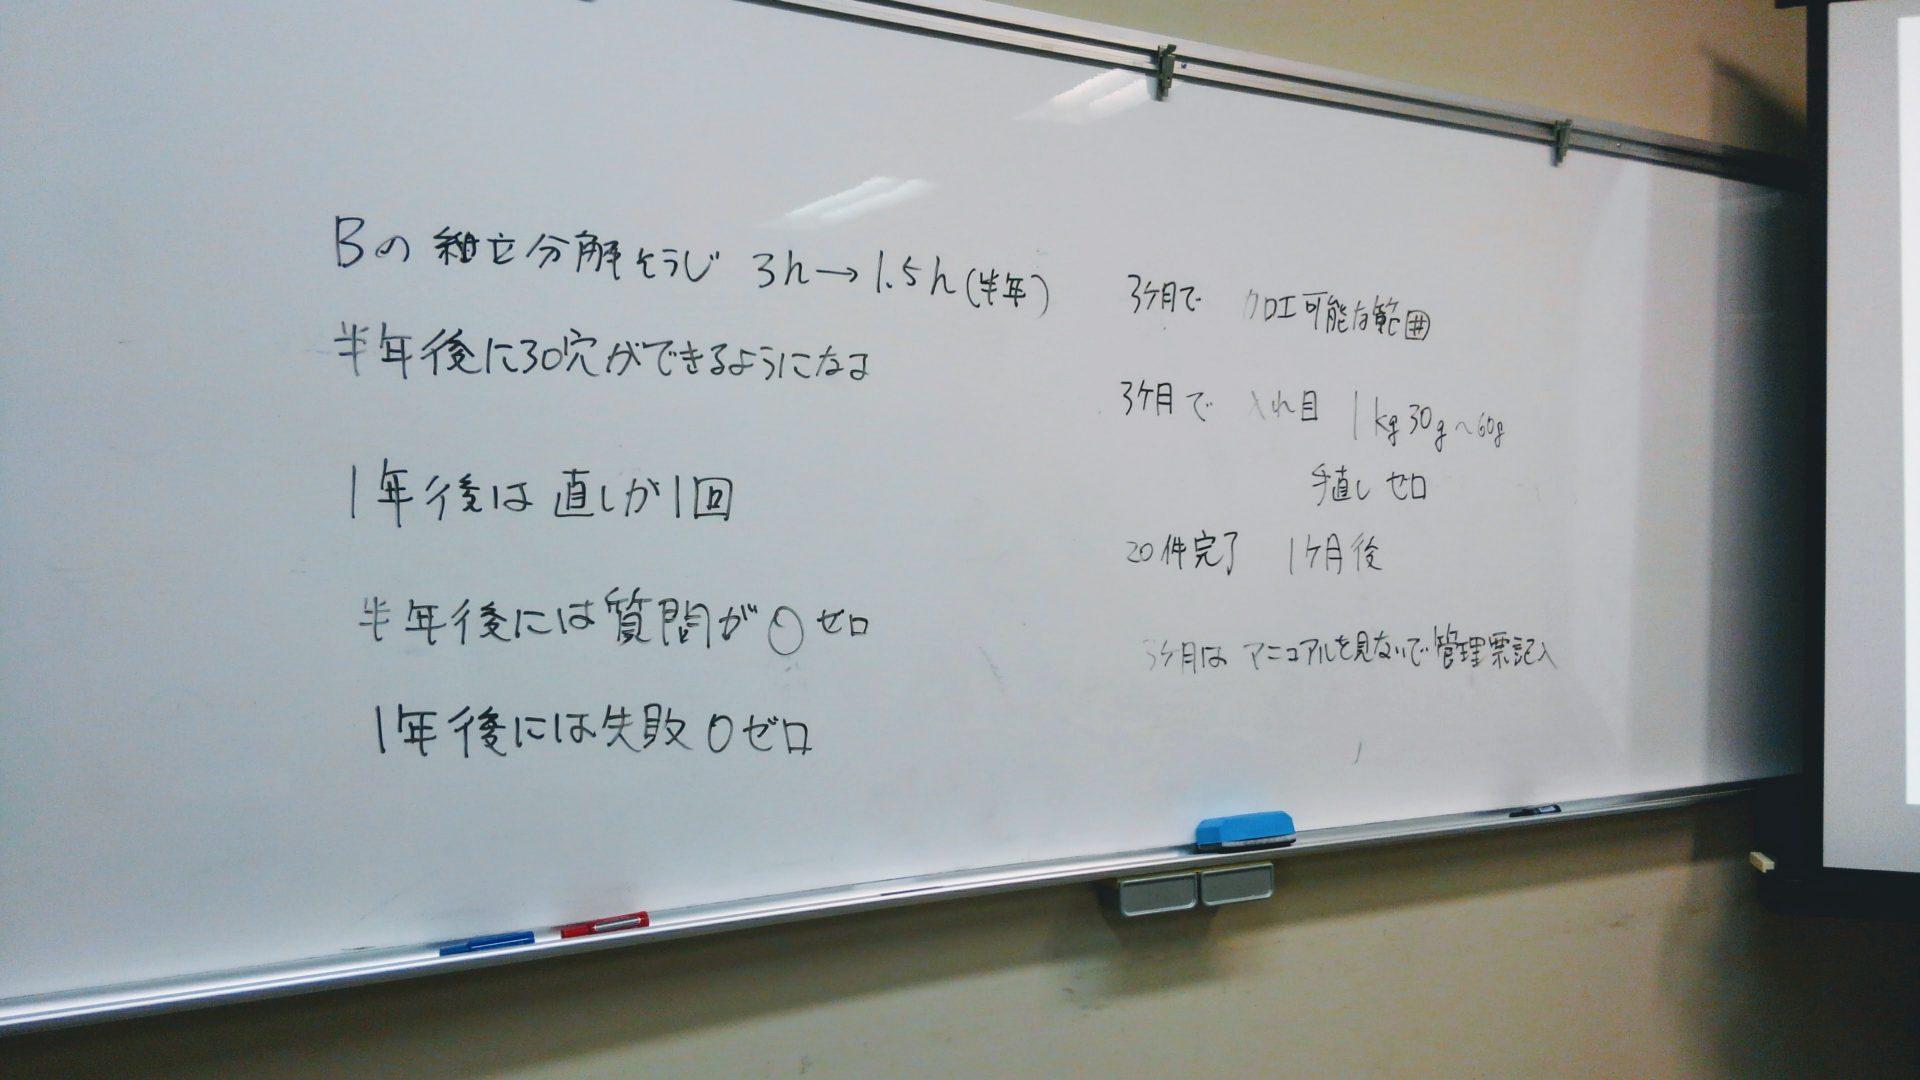 Bの組立分解そうじ 3h→1.5h(半年)
半年後に30穴ができるようになる
1年後は直しが1回
半年後には質問が0ゼロ
1年後には失敗0ゼロ
3ケ月で 加工可能な範囲
3ケ月で 入れ目 1kg 30g～60g
手直しゼロ
20件完了 1ケ月後
3ケ月は マニュアルを見ないで管理票記入